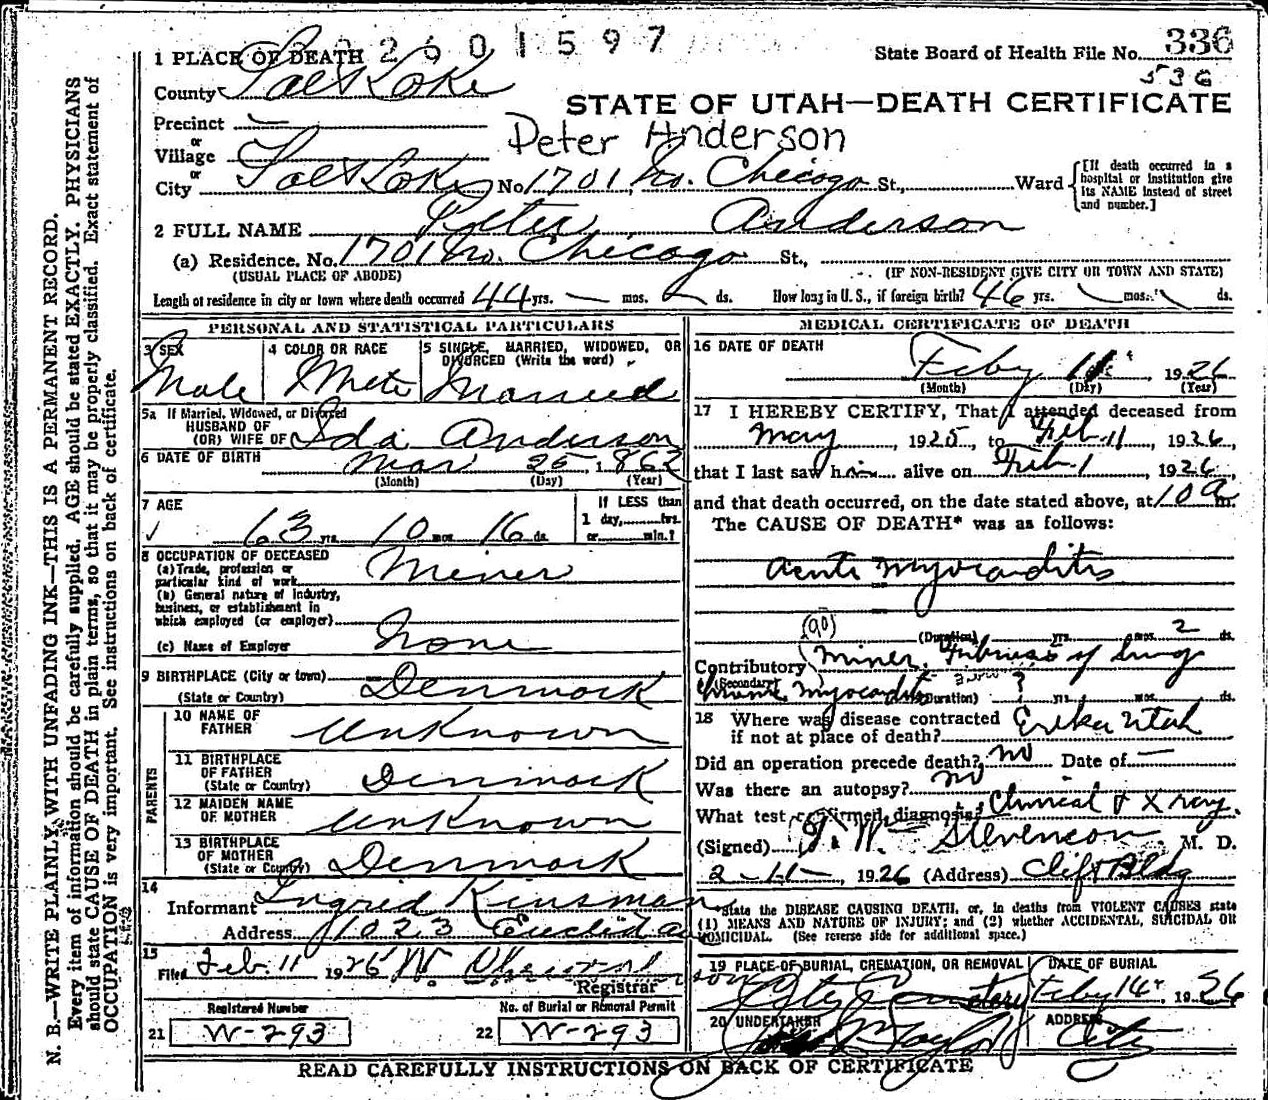 N. B.—WRITE PLAINLY, WITH UNFADING INK—THIS IS A PERMANENT RECORD.
Every item of information should be carefully supplied. AGE should be stated EXACTLY. PHYSICIANS
should state CAUSE OF DEATH in plain terms, so that it may be properly classified. Exact statement of
OCCUPATION is very important. See instructions on back of certificate.
2601597
State Board of Health File No. 336
536
1 PLACE OF DEATH
County Salt Lake
STATE OF UTAH—DEATH CERTIFICATE
Precinct —
Peter Anderson
or
Village
or
City Salt Lake No. 1701 No. Chicago St., Ward
[If death occurred in a
hospital or institution give
its NAME instead of street
and number.]
2 FULL NAME Peter Anderson
(a) Residence. No. 1701 No. Chicago St.,
(USUAL PLACE OF ABODE)
(IF NON-RESIDENT GIVE CITY OR TOWN AND STATE)
Length of residence in city or town where death occurred 44 yrs. — mos. — ds. How long in U. S., if foreign birth? 46 yrs. mos. ds.
PERSONAL AND STATISTICAL PARTICULARS
3 SEX
Male
4 COLOR OR RACE
White
5 SINGLE, MARRIED, WIDOWED, OR
DIVORCED (Write the word)
Married
5a If Married, Widowed, or Divorced
HUSBAND OF
(OR) WIFE OF Ida Anderson
6 DATE OF BIRTH Mar 25, 1862
(Month) (Day) (Year)
7 AGE
63 yrs. 10 mos. 16 ds.
If LESS than
1 day, hrs.
or min.?
8 OCCUPATION OF DECEASED
(a) Trade, profession or
particular kind of work Miner
(b) General nature of industry,
business, or establishment in
which employed (or employer)
(c) Name of Employer None
9 BIRTHPLACE (City or town)
(State or Country) Denmark
PARENTS
10 NAME OF
FATHER Unknown
11 BIRTHPLACE
OF FATHER
(State or Country) Denmark
12 MAIDEN NAME
OF MOTHER Unknown
13 BIRTHPLACE
OF MOTHER
(State or Country) Denmark
14
Informant Ingrid Kinsman
Address 1023 Euclid av
15
Filed Feb. 11 1926 W
Registrar
Registered Number
21 W-293
No. of Burial or Removal Permit
22 W-293
MEDICAL CERTIFICATE OF DEATH
16 DATE OF DEATH
Feby 11, 1926
(Month) (Day) (Year)
17 I HEREBY CERTIFY, That I attended deceased from
May, 1925 to Feb 11, 1926,
that I last saw him alive on Feb 1 1926
and that death occurred, on the date stated above, at 10 a m.
The CAUSE OF DEATH* was as follows:
Acute Myocarditis
(90)
(Duration) yrs. mos. 2 ds.
Contributory Miner. Fibrosis of lung
(Secondary)
Chronic Myocarditis (Duration) ? yrs. mos. ds.
18 Where was disease contracted
if not at place of death? Ereka Utah
Did an operation precede death? no Date of —
Was there an autopsy? no
What test confirmed diagnosis? Clinical & X ray.
(Signed) W. Stevenson M. D.
2-11-, 1926 (Address) Clift Bldg
*State the DISEASE CAUSING DEATH, or, in deaths from VIOLENT CAUSES state
(1) MEANS AND NATURE OF INJURY; and (2) whether ACCIDENTAL, SUICIDAL OR
HOMICIDAL. (See reverse side for additional space.)
19 PLACE OF BURIAL, CREMATION, OR REMOVAL
City Cemetery
DATE OF BURIAL
Feby 14, 1926
20 UNDERTAKER
Taylor
ADDRESS
City
READ CAREFULLY INSTRUCTIONS ON BACK OF CERTIFICATE